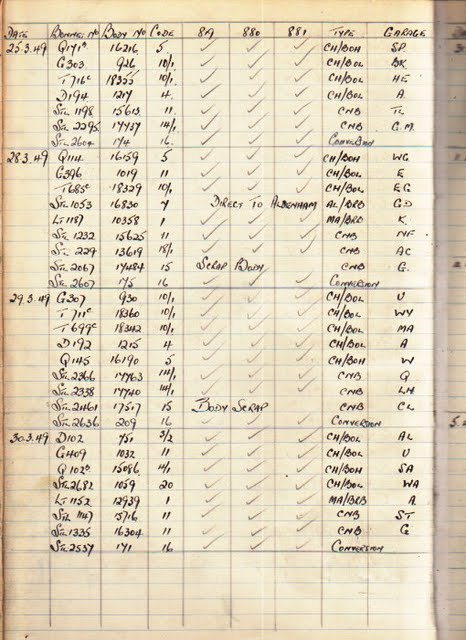 DATE BONNET NO BODY NO CODE 8A 880 881 TYPE GARAGE
25.3.49 Q171c 16216 5 ✓ ✓ ✓ CH/BOH SP.
G303 926 10/1 ✓ ✓ ✓ CH/BOL BK
T716c 18355 10/1 ✓ ✓ ✓ CH/BOL HE
D194 1217 4 ✓ ✓ ✓ CH/BOL A
STL 1198 15613 11 ✓ ✓ ✓ CNB TL
STL 2295 14/1 ✓ ✓ ✓ CNB G.M.
STL 2604 174 16 ✓ ✓ ✓ CONVERSION
28.3.49 Q114 16159 5 ✓ ✓ ✓ CH/BOH WG
G396 1019 11 ✓ ✓ ✓ CH/BOL E
T685c 18329 10/1 ✓ ✓ ✓ CH/BOL EG
STL 1053 16830 7 DIRECT TO ALDENHAM AL/BRB GD
LT 1187 10358 1 ✓ ✓ ✓ MA/BRB K
STL 1232 15625 11 ✓ ✓ ✓ CNB NF
STL 229 13619 18/1 ✓ ✓ ✓ CNB AC
STL 2067 17484 15 SCRAP BODY CNB G.
STL 2607 175 16 ✓ ✓ ✓ CONVERSION
29.3.49 G307 930 10/1 ✓ ✓ ✓ CH/BOL U
T711c 18360 10/1 ✓ ✓ ✓ CH/BOL WY
T699c 18342 10/1 ✓ ✓ ✓ CH/BOL MA
D192 1215 4 ✓ ✓ ✓ CH/BOL A
Q145 16190 5 ✓ ✓ ✓ CH/BOH W
STL 2366 14/1 ✓ ✓ ✓ CNB Q
STL 2338 14/1 ✓ ✓ ✓ CNB LH
STL 2461 17517 15 BODY SCRAP CNB CL
STL 2636 209 16 ✓ ✓ ✓ CONVERSION
30.3.49 D102 751 3/2 ✓ ✓ ✓ CH/BOL AL
G409 1032 11 ✓ ✓ ✓ CH/BOL U
Q102c 15086 4/1 ✓ ✓ ✓ CH/BOH SA
STL 2682 1059 20 ✓ ✓ ✓ CH/BOL WA
LT 1152 12939 1 ✓ ✓ ✓ MA/BRB A
STL 1147 15716 11 ✓ ✓ ✓ CNB ST
STL 1335 16304 11 ✓ ✓ ✓ CNB G
STL 2557 171 16 ✓ ✓ ✓ CONVERSION